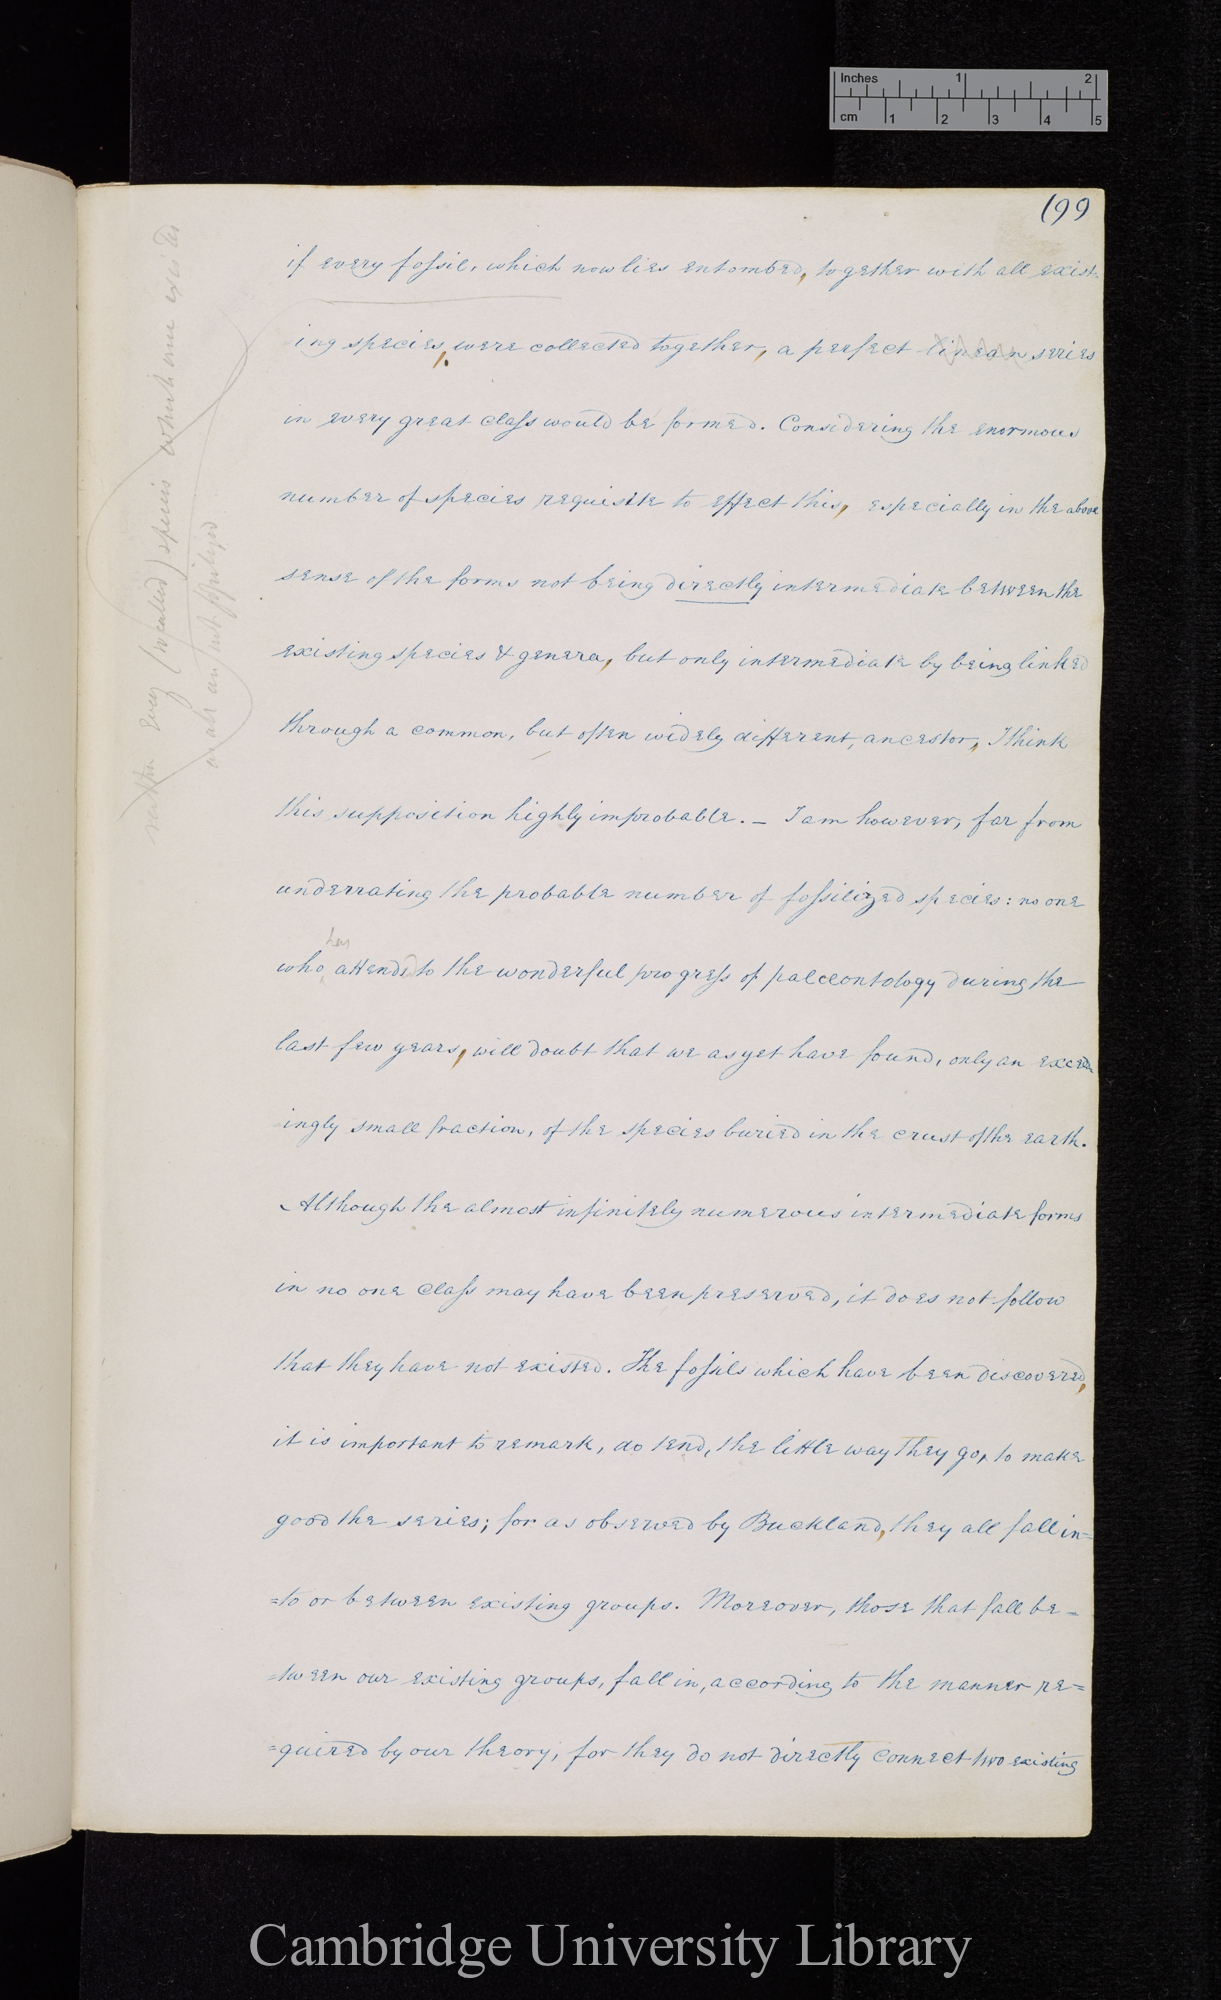 Inches 1 2
cm 1 2 3 4 5
199
if every fossil, which now lies entombed, together with all exist-
ing species, were collected together, a perfect linean series
in every great class would be formed. Considering the enormous
number of species requisite to effect this, especially in the above
sense of the forms not being directly intermediate between the
existing species & genera, but only intermediate by being linked
through a common, but often widely different, ancestor, I think
this supposition highly improbable. — I am however, far from
underrating the probable number of fossilized species: no one
has
who attends to the wonderful progress of palæontology during the
last few years, will doubt that we as yet have found, only an exceed-
ingly small fraction, of the species buried in the crust of the earth.
Although the almost infinitely numerous intermediate forms
in no one class may have been preserved, it does not follow
that they have not existed. The fossils which have been discovered,
it is important to remark, do tend, the little way they go, to make
good the series; for as observed by Buckland, they all fall in=
=to or between existing groups. Moreover, those that fall be=
=tween our existing groups, fall in, according to the manner re=
=quired by our theory, for they do not directly connect two existing
rather every species which once existed
Cambridge University Library